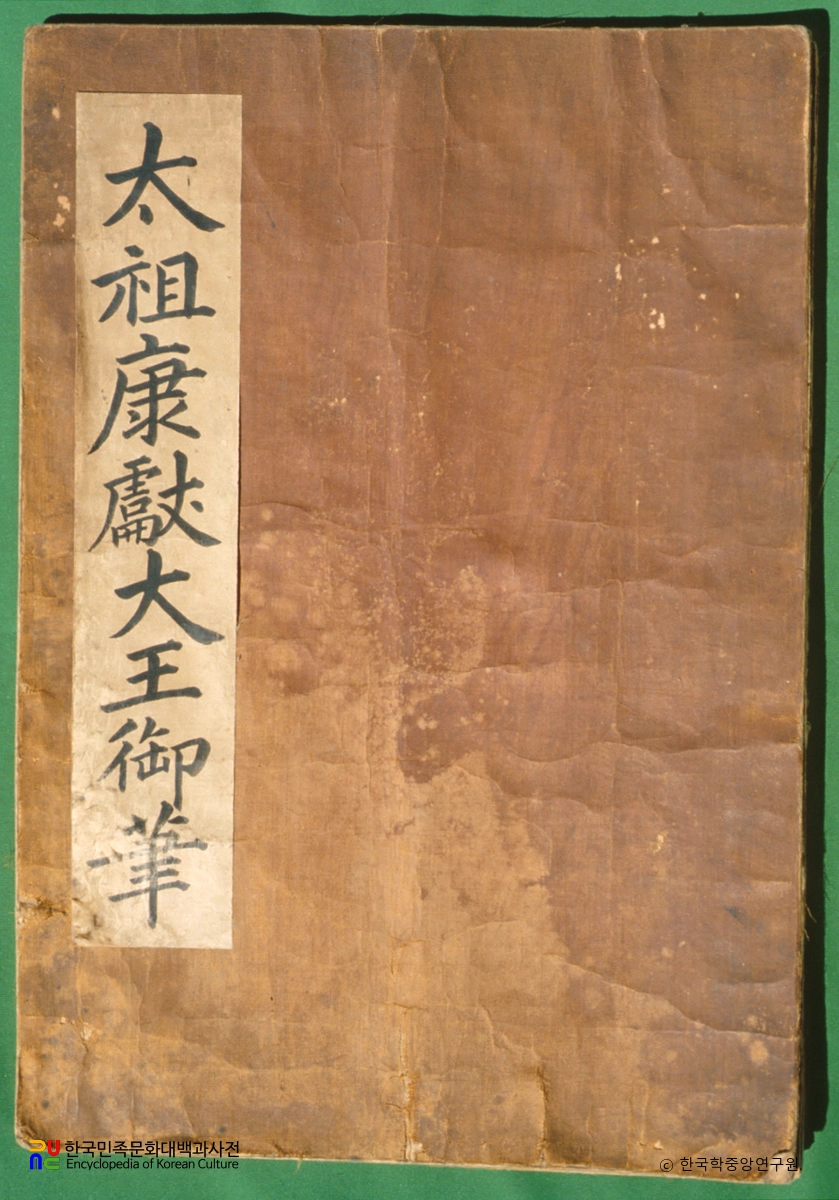 太祖康獻大王御筆
한국민족문화대백과사전
Encyclopedia of Korean Culture
© 한국학중앙연구원